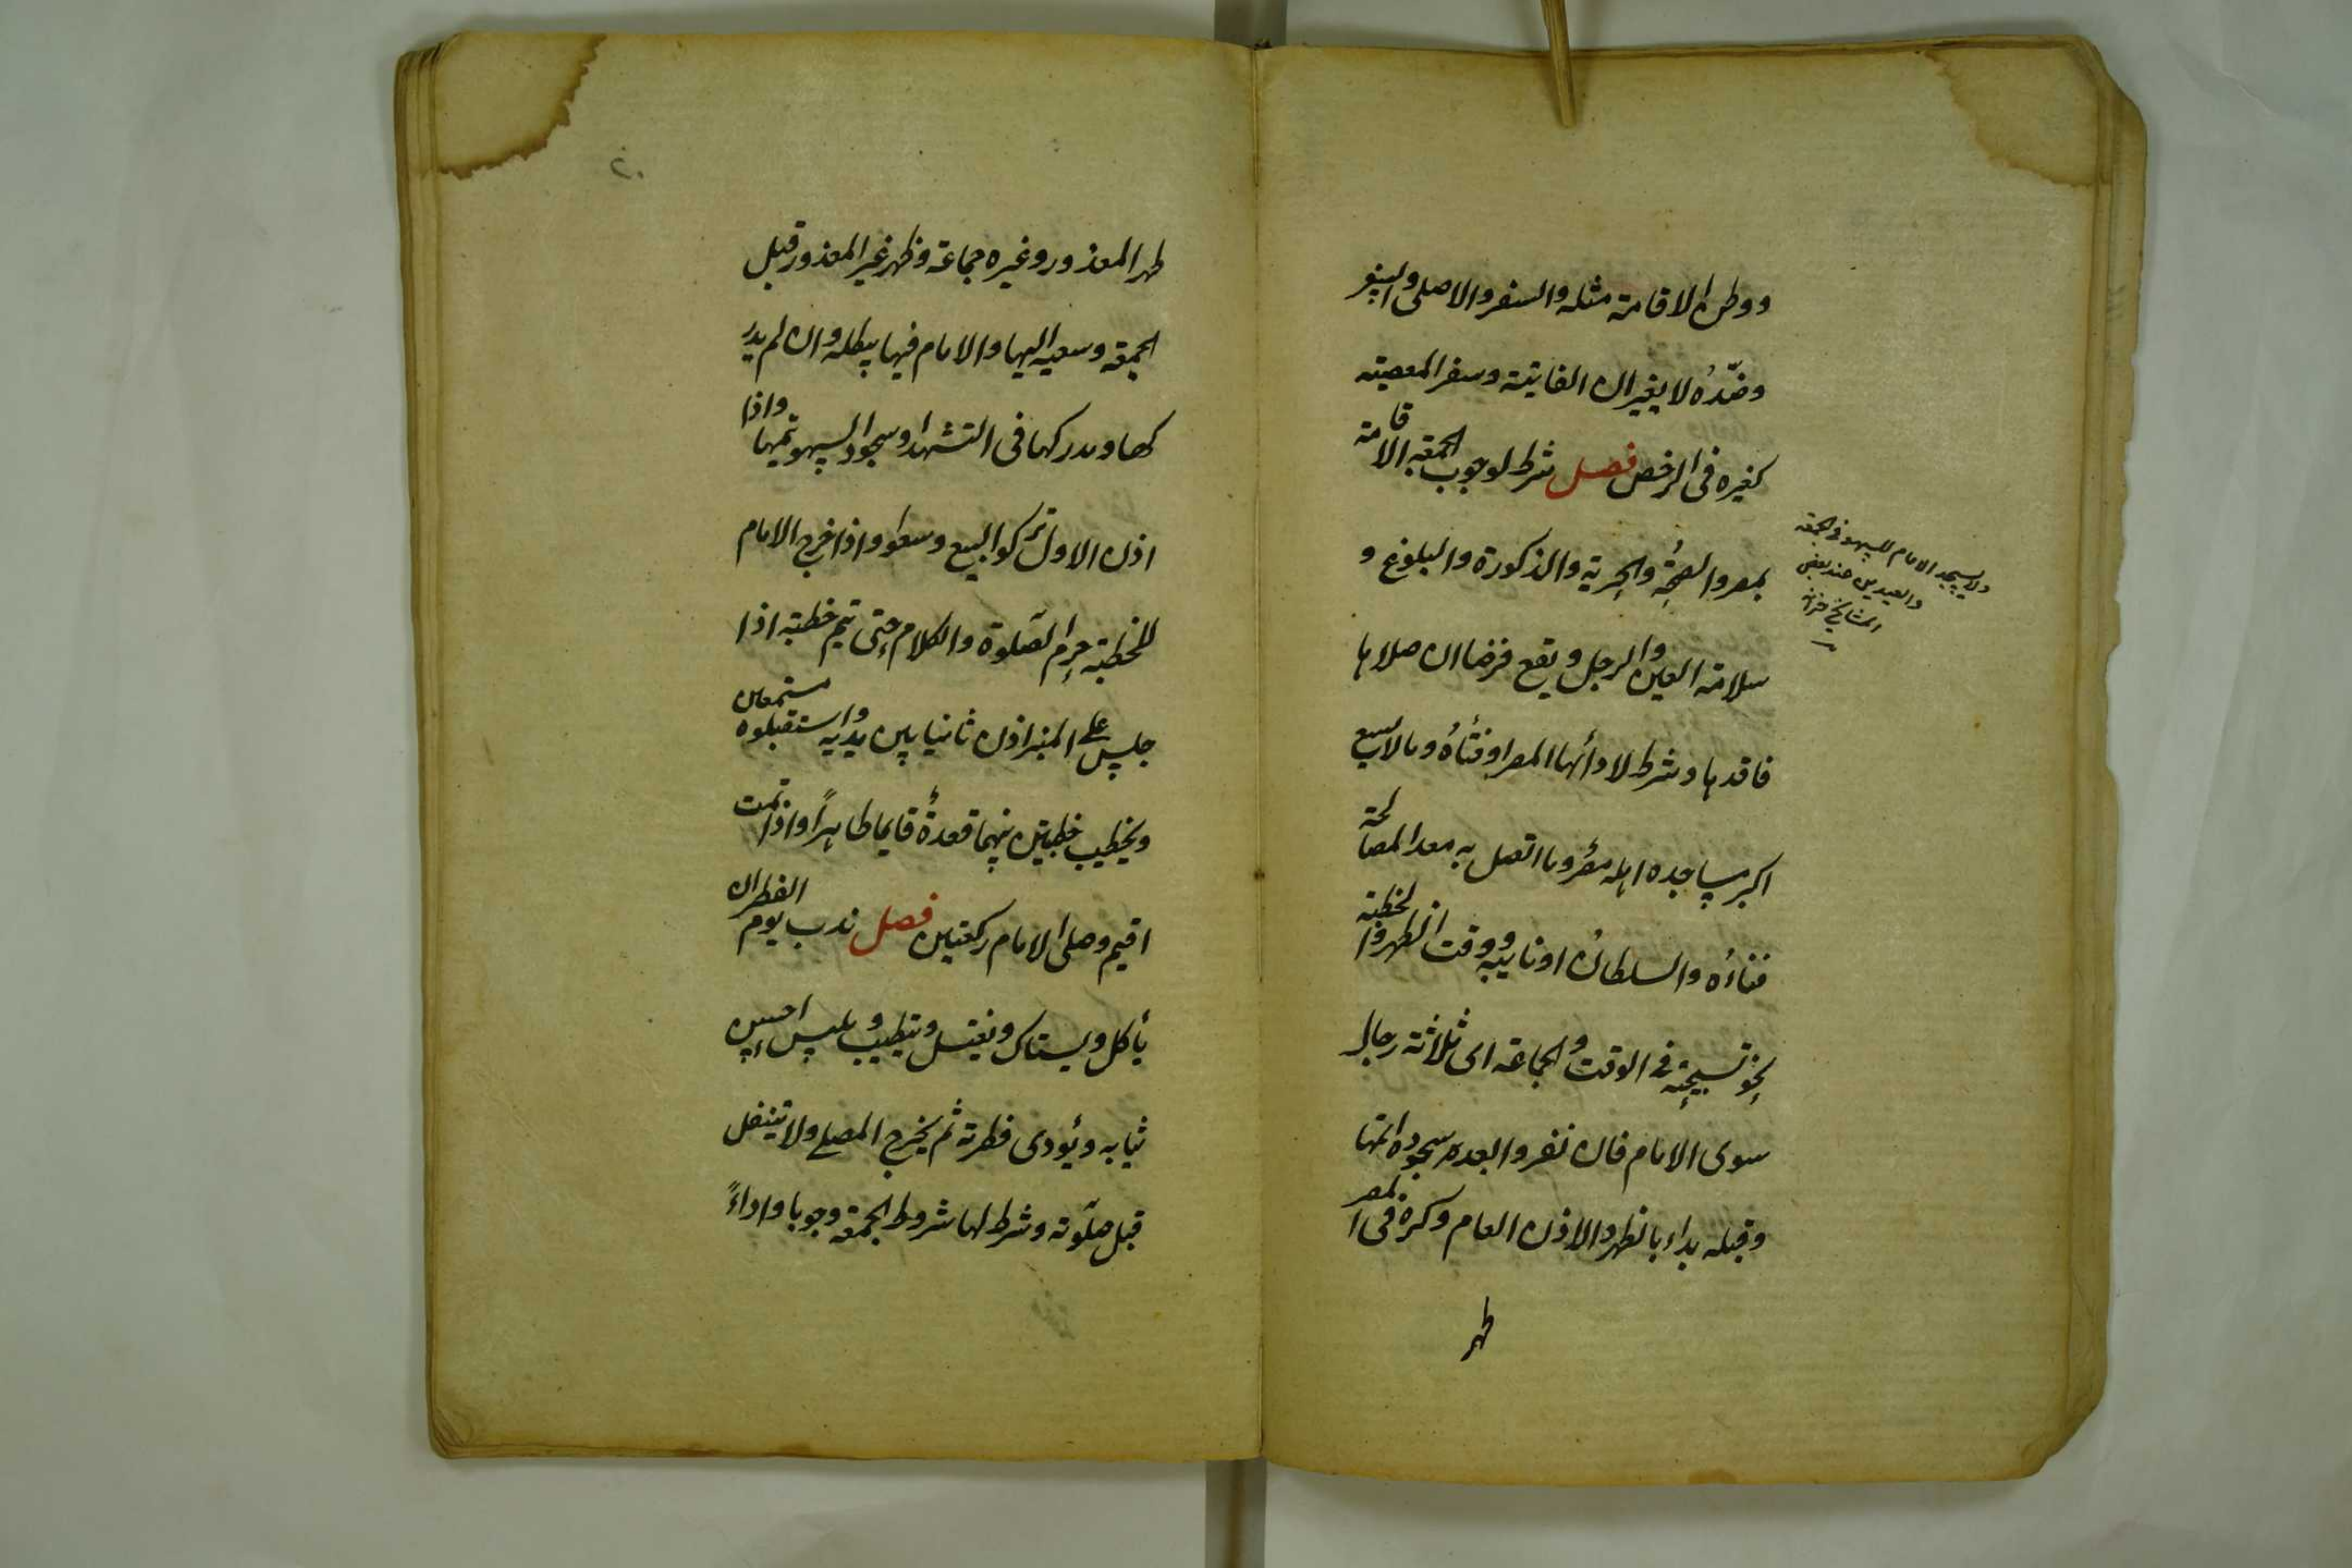 ووطن الاقامة مثله والسفر والاصلی والسفر
وضدّه لا یغیران الفایتة وسفر المعصیته
کغیره فی الرخص فصل شرط لوجوب الجمعة الاقامة
بمصر والصحة والحریة والذکورة والبلوغ و
سلامة العین والرجل ویقع فرضا ان صلاها
فاقدها وشرط لادأئها المصر او فنأه وما لا یسع
اکبر مساجده اهله مصر وما اتصل به معد المصالحة
فناءه والسلطان او نایبه ووقت الظهر والخطبة
نحو تسبیحة فی الوقت والجماعة ای ثلاثة رجال
سوی الامام فان نفروا بعد سجوده اتمها
وقبله بداء بالظهر والاذن العام وکره فی المصر
ظهر
ولا یسجد الامام للسهو فی الجمعة
والعیدین عند بعض
المشایخ خزانة
۲۰
ظهر المعذور وغیره جماعة وظهر غیر المعذور قبل
الجمعة وسعیه الیها والامام فیها یبطله وان لم یدر
کها ومدرکها فی التشهد او سجود السهو یتمها واذا
اذن الاول ترکوا البیع وسعوا واذا خرج الامام
للخطبة حرم الصّلوة والکلام حتی یتم خطبته اذا
جلس علی المنبر اذن ثانیا بین یدیه واستقبلوه مستمعین
ویخطب خطبتین بینهما قعدة قایما طاهراً واذا تمت
اقیم وصلی الامام رکعتین فصل ندب یوم الفطر ان
یأکل ویستاک ویغتسل ویتطیب ویلبس احسن
ثیابه ویؤدی فطرته ثم یخرج المصلی ولا یتنفل
قبل صلوته وشرط لها شروط الجمعة وجوبا واداءً